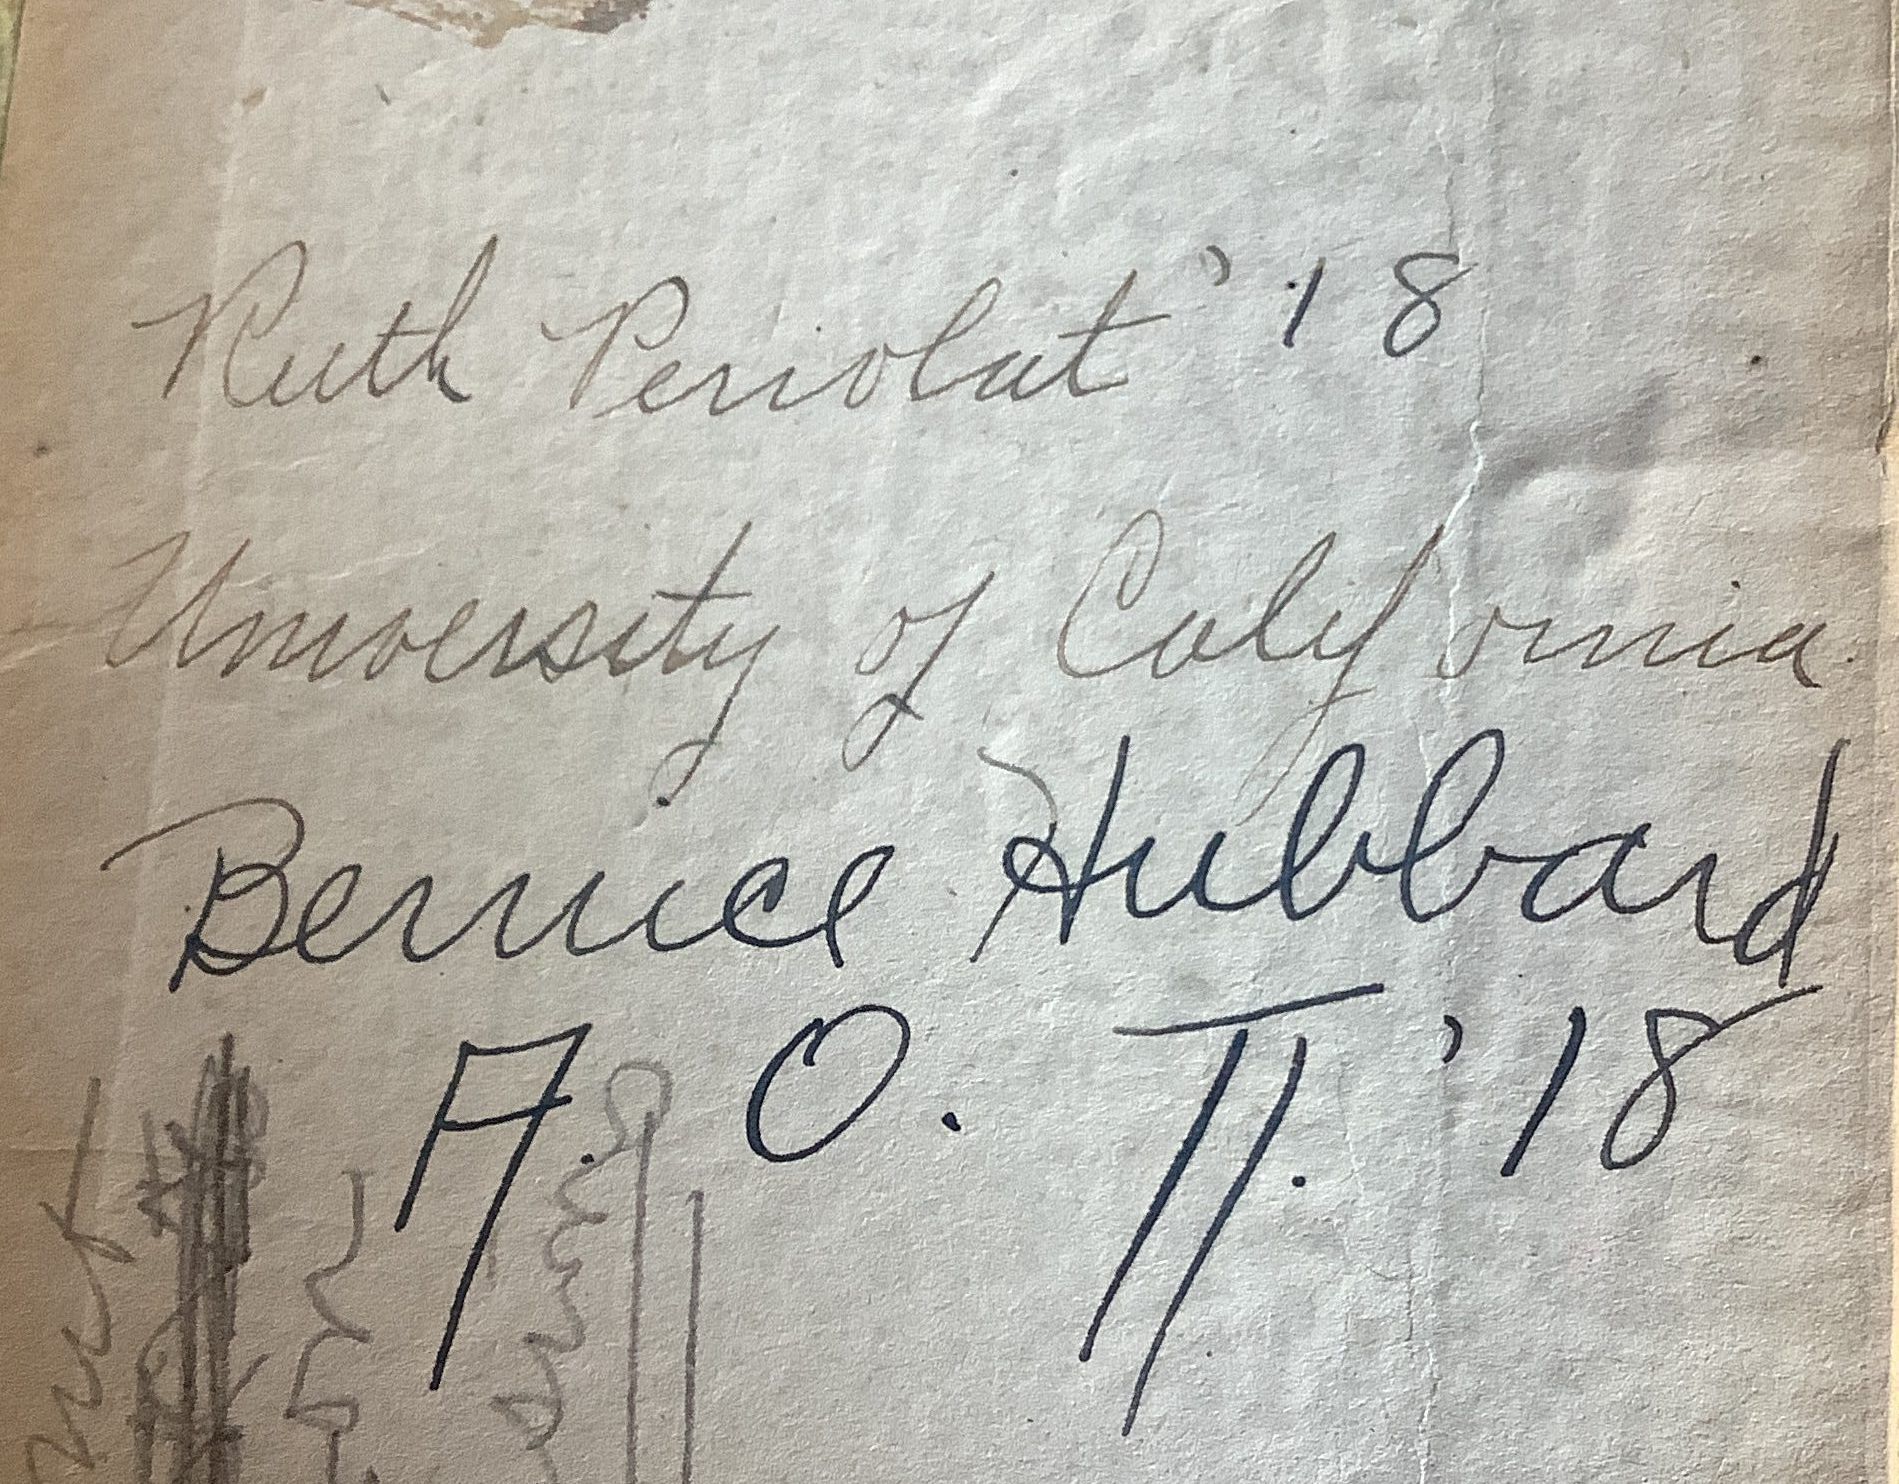 Ruth Periolat '18
University of California
Bernice Hubbard
A. O. Π. '18